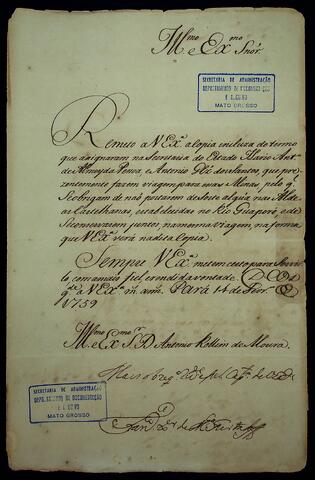 Illmo e Exmo Snor.
SECRETARIA DE ADMINISTRAÇÃO
DEPARTAMENTO DE DOCUMENTAÇÃO
E ARQUIVO
MATO GROSSO
Remeto a V Exa. a copia incluza do termo
que asignaram na Secretaria do Estado Ilario Anto.
de Almeyda e Antonio que pre-
zentemente fazem viagem para essas Minas, pelo ql.
Se obrigam de não portarem de sorte algũa nas Alde-
as Castelhanas, estabelecidas no Rio Guaporé, e de
Se conservarem juntos, na mesma viagem, na forma
que V Exa. verá na dita Copia.
Sempre V Exa. me tem certo para Servi-
lo com a mais fiel, e rendida vontade. D
gde. a V Exa. ms. ans. Pará 14 de
1759
Illmo e Exmo Sr. D. Antonio Rollim de Moura.
SECRETARIA DE ADMINISTRAÇÃO
DEPTO. ESTADUAL DE DOCUMENTAÇÃO
E ARQUIVO
MATO GROSSO